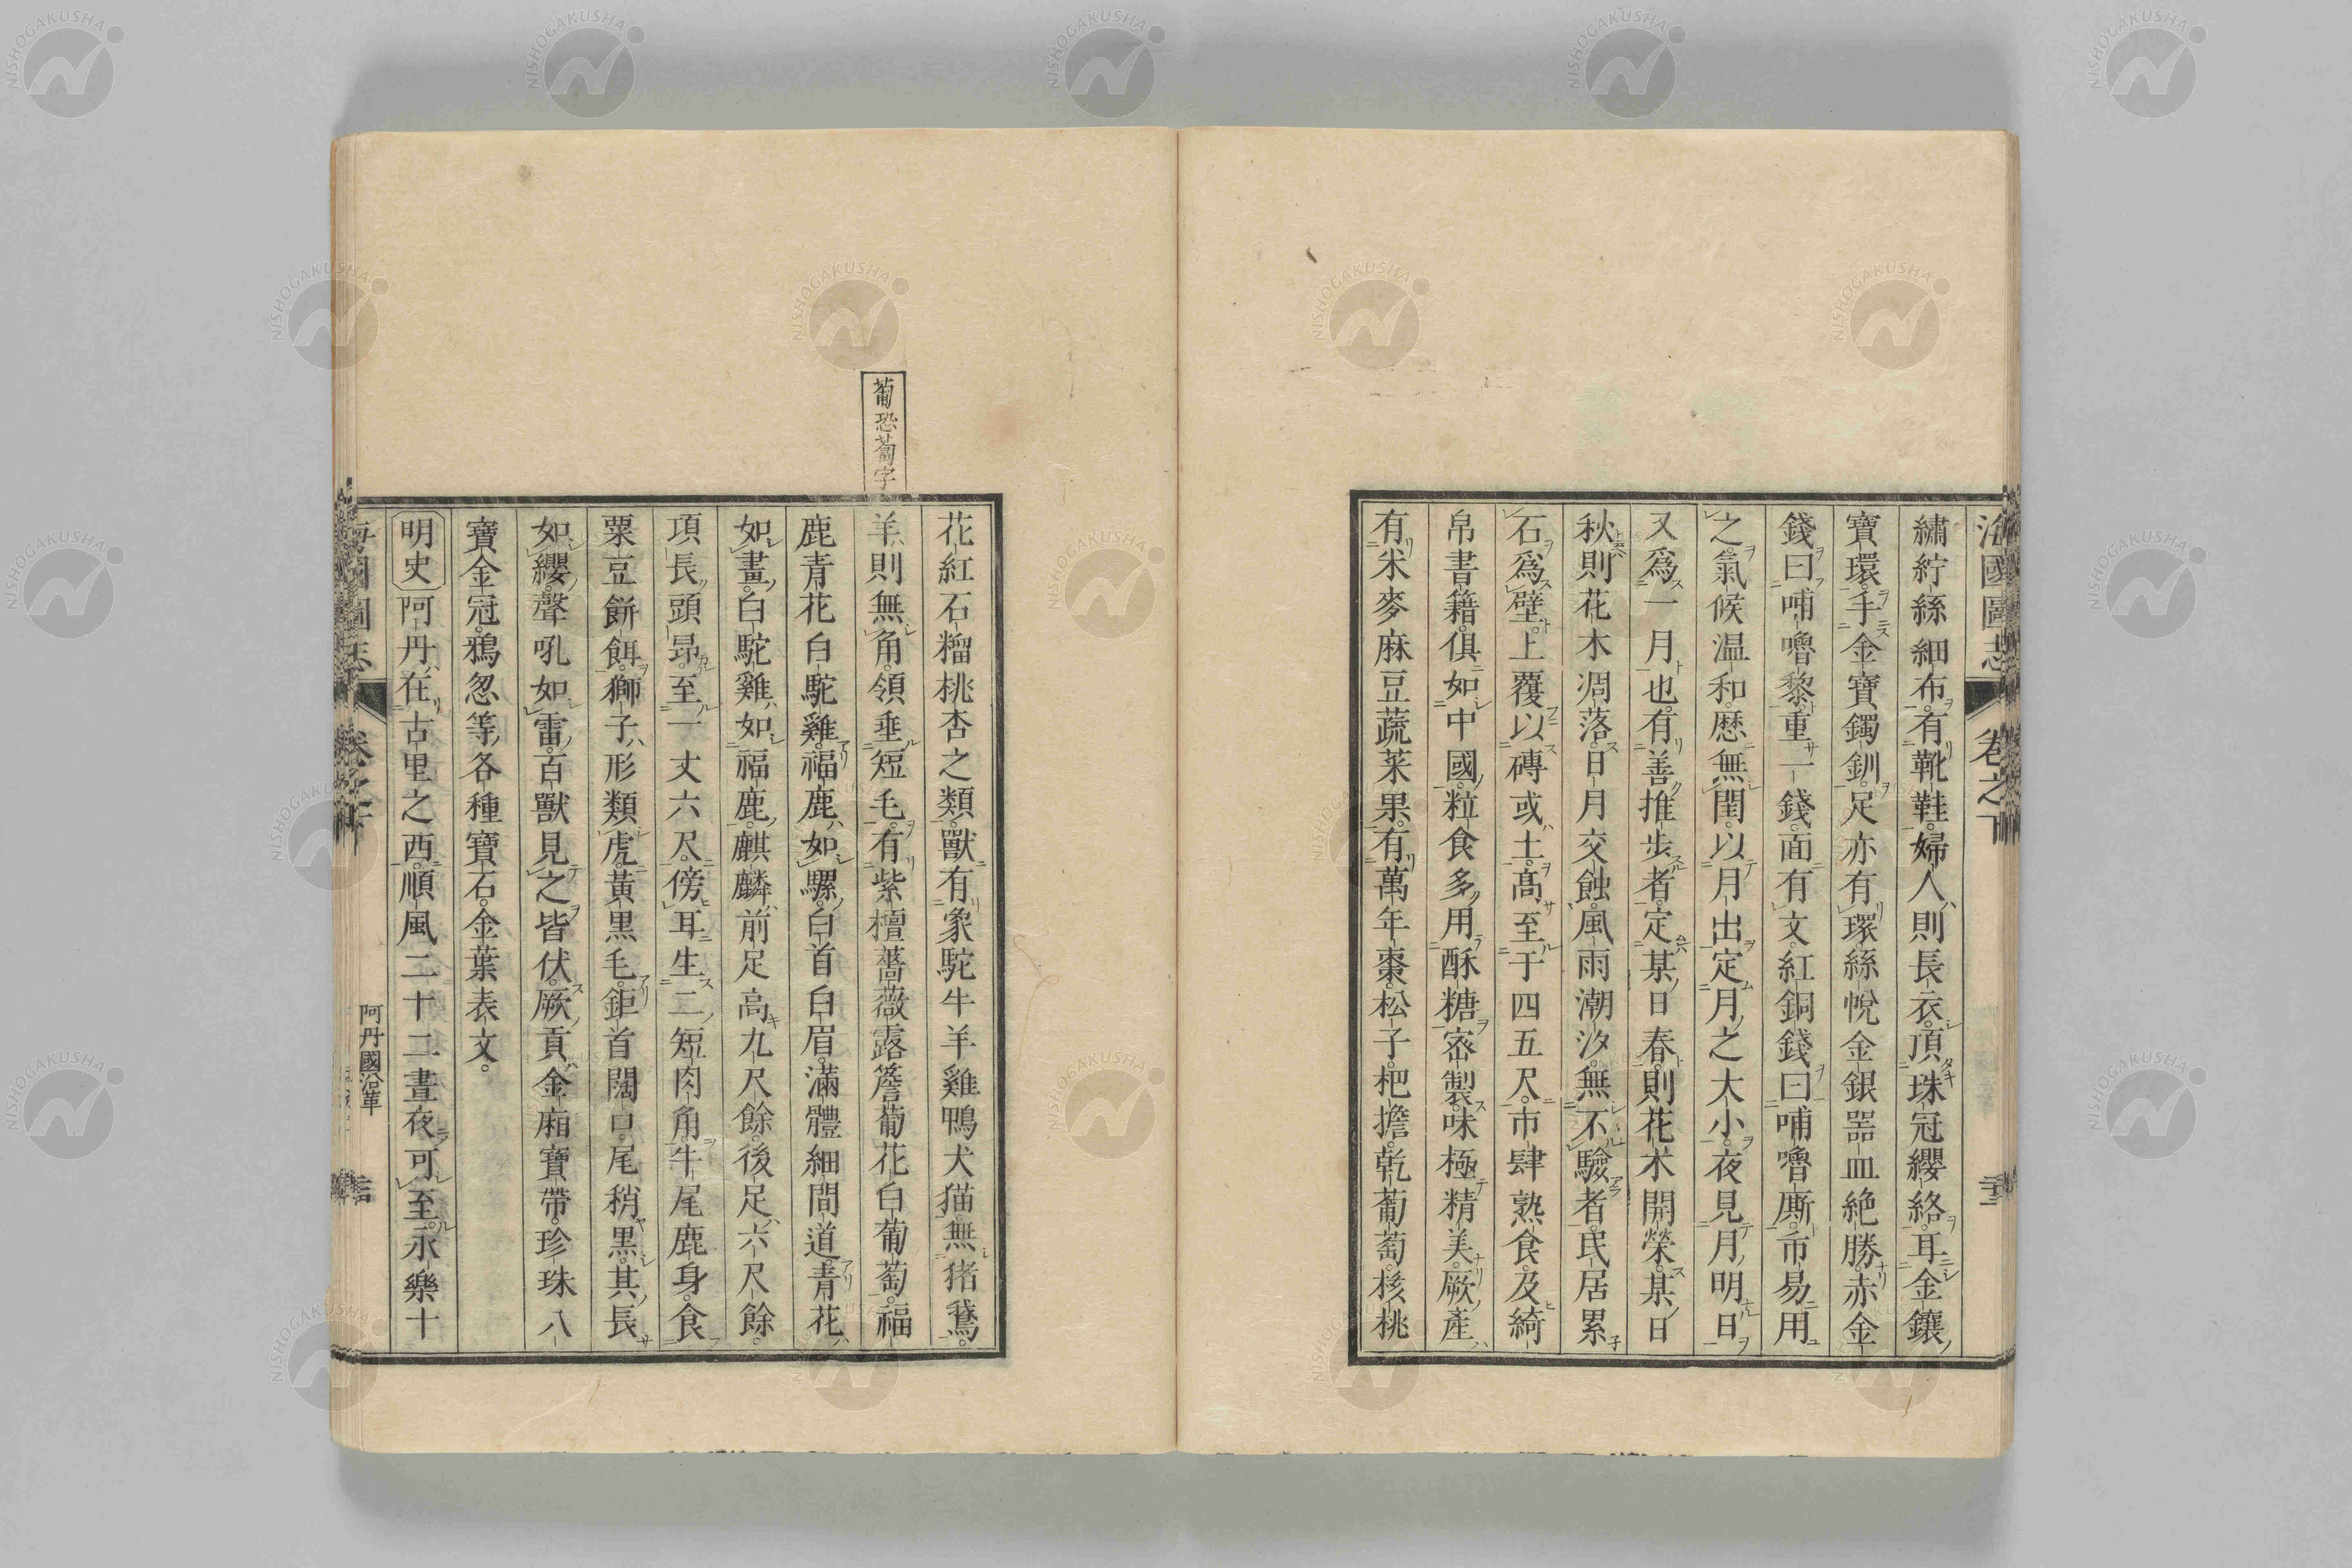 海國圖志 卷之下
繡紵絲細布。有靴鞋。婦人則長衣。頂珠冠纓絡。耳金鑲
寶環。手金寶鐲釧。足亦有環。絲帨金銀器皿絶勝。赤金
錢曰哺嚕黎。重一錢。面有文。紅銅錢曰哺嚕厮。市易用
之。氣候温和。歴無閏。以月出定月之大小。夜見月明日
又爲一月也。有善推步者。定某日春。則花木開榮。某日
秋。則花木凋落。日月交蝕。風雨潮汐。無不驗者。民居累
石爲壁。上覆以磚或土。高至于四五尺。市肆熟食。及綺
帛書籍。俱如中國。粒食多用酥糖宻製。味極精美。厥產
有米麥麻豆蔬菜果。有萬年棗。松子。杷擔。乾葡萄。核桃
葡恐蔔字
花紅石榴桃杏之類。獸有象駝牛羊雞鴨犬猫。無猪鵞。
羊則無角。領垂短毛。有紫檀薔薇露簷葡花白葡萄。福
鹿青花白駝雞。福鹿如騾。白首白眉。滿體細間道。青花
如畫。白駝雞如福鹿。麒麟前足高九尺餘。後足六尺餘。
項長頭昻。至一丈六尺。傍耳生二短肉角。牛尾鹿身。食
粟豆餅餌。獅子形類虎。黃黒毛。鉅首闊口。尾稍黒。其長
如纓。聲吼如雷。百獸見之皆伏。厥貢金廂寶帶。珍珠八
寶金冠。鴉忽等各種寶石。金葉表文。
明史 阿丹在古里之西。順風二十二晝夜可至。永樂十
阿丹國沿革